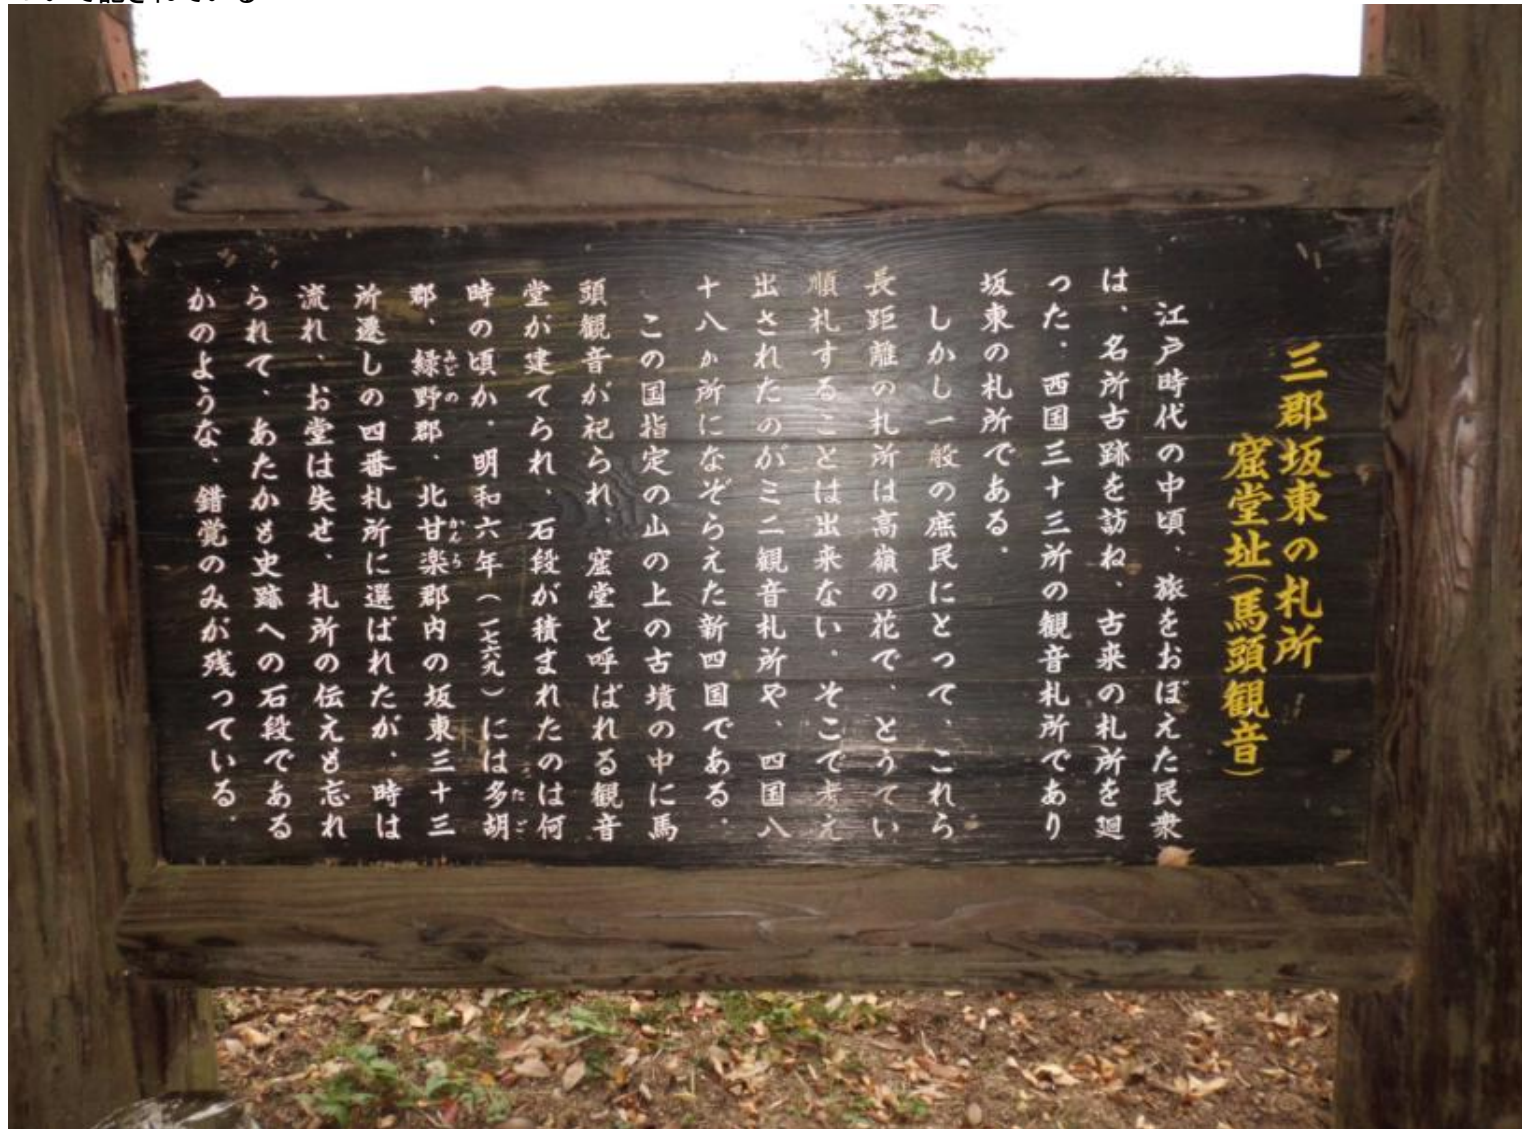 三郡坂東の札所
窟堂址(馬頭観音)
江戸時代の中頃、旅をおぼえた民衆
は、名所古跡を訪ね、古来の札所を廻
った。西国三十三所の観音札所であり
坂東の札所である。
しかし一般の庶民にとって、これら
長距離の札所は高嶺の花で、とうてい
順礼することは出来ない。そこで考え
出されたのがミニ観音札所や、四国八
十八ヵ所になぞらえた新四国である。
この国指定の山の上の古墳の中に馬
頭観音が祀られ、窟堂と呼ばれる観音
堂が建てられ、石段が積まれたのは何
時の頃か。明和六年(一七六九)には多胡
郡、緑野郡、北甘楽郡内の坂東三十三
所遷しの四番札所に選ばれたが、時は
流れ、お堂は失せ、札所の伝えも忘れ
られて、あたかも史跡への石段である
かのような、錯覚のみが残っている。